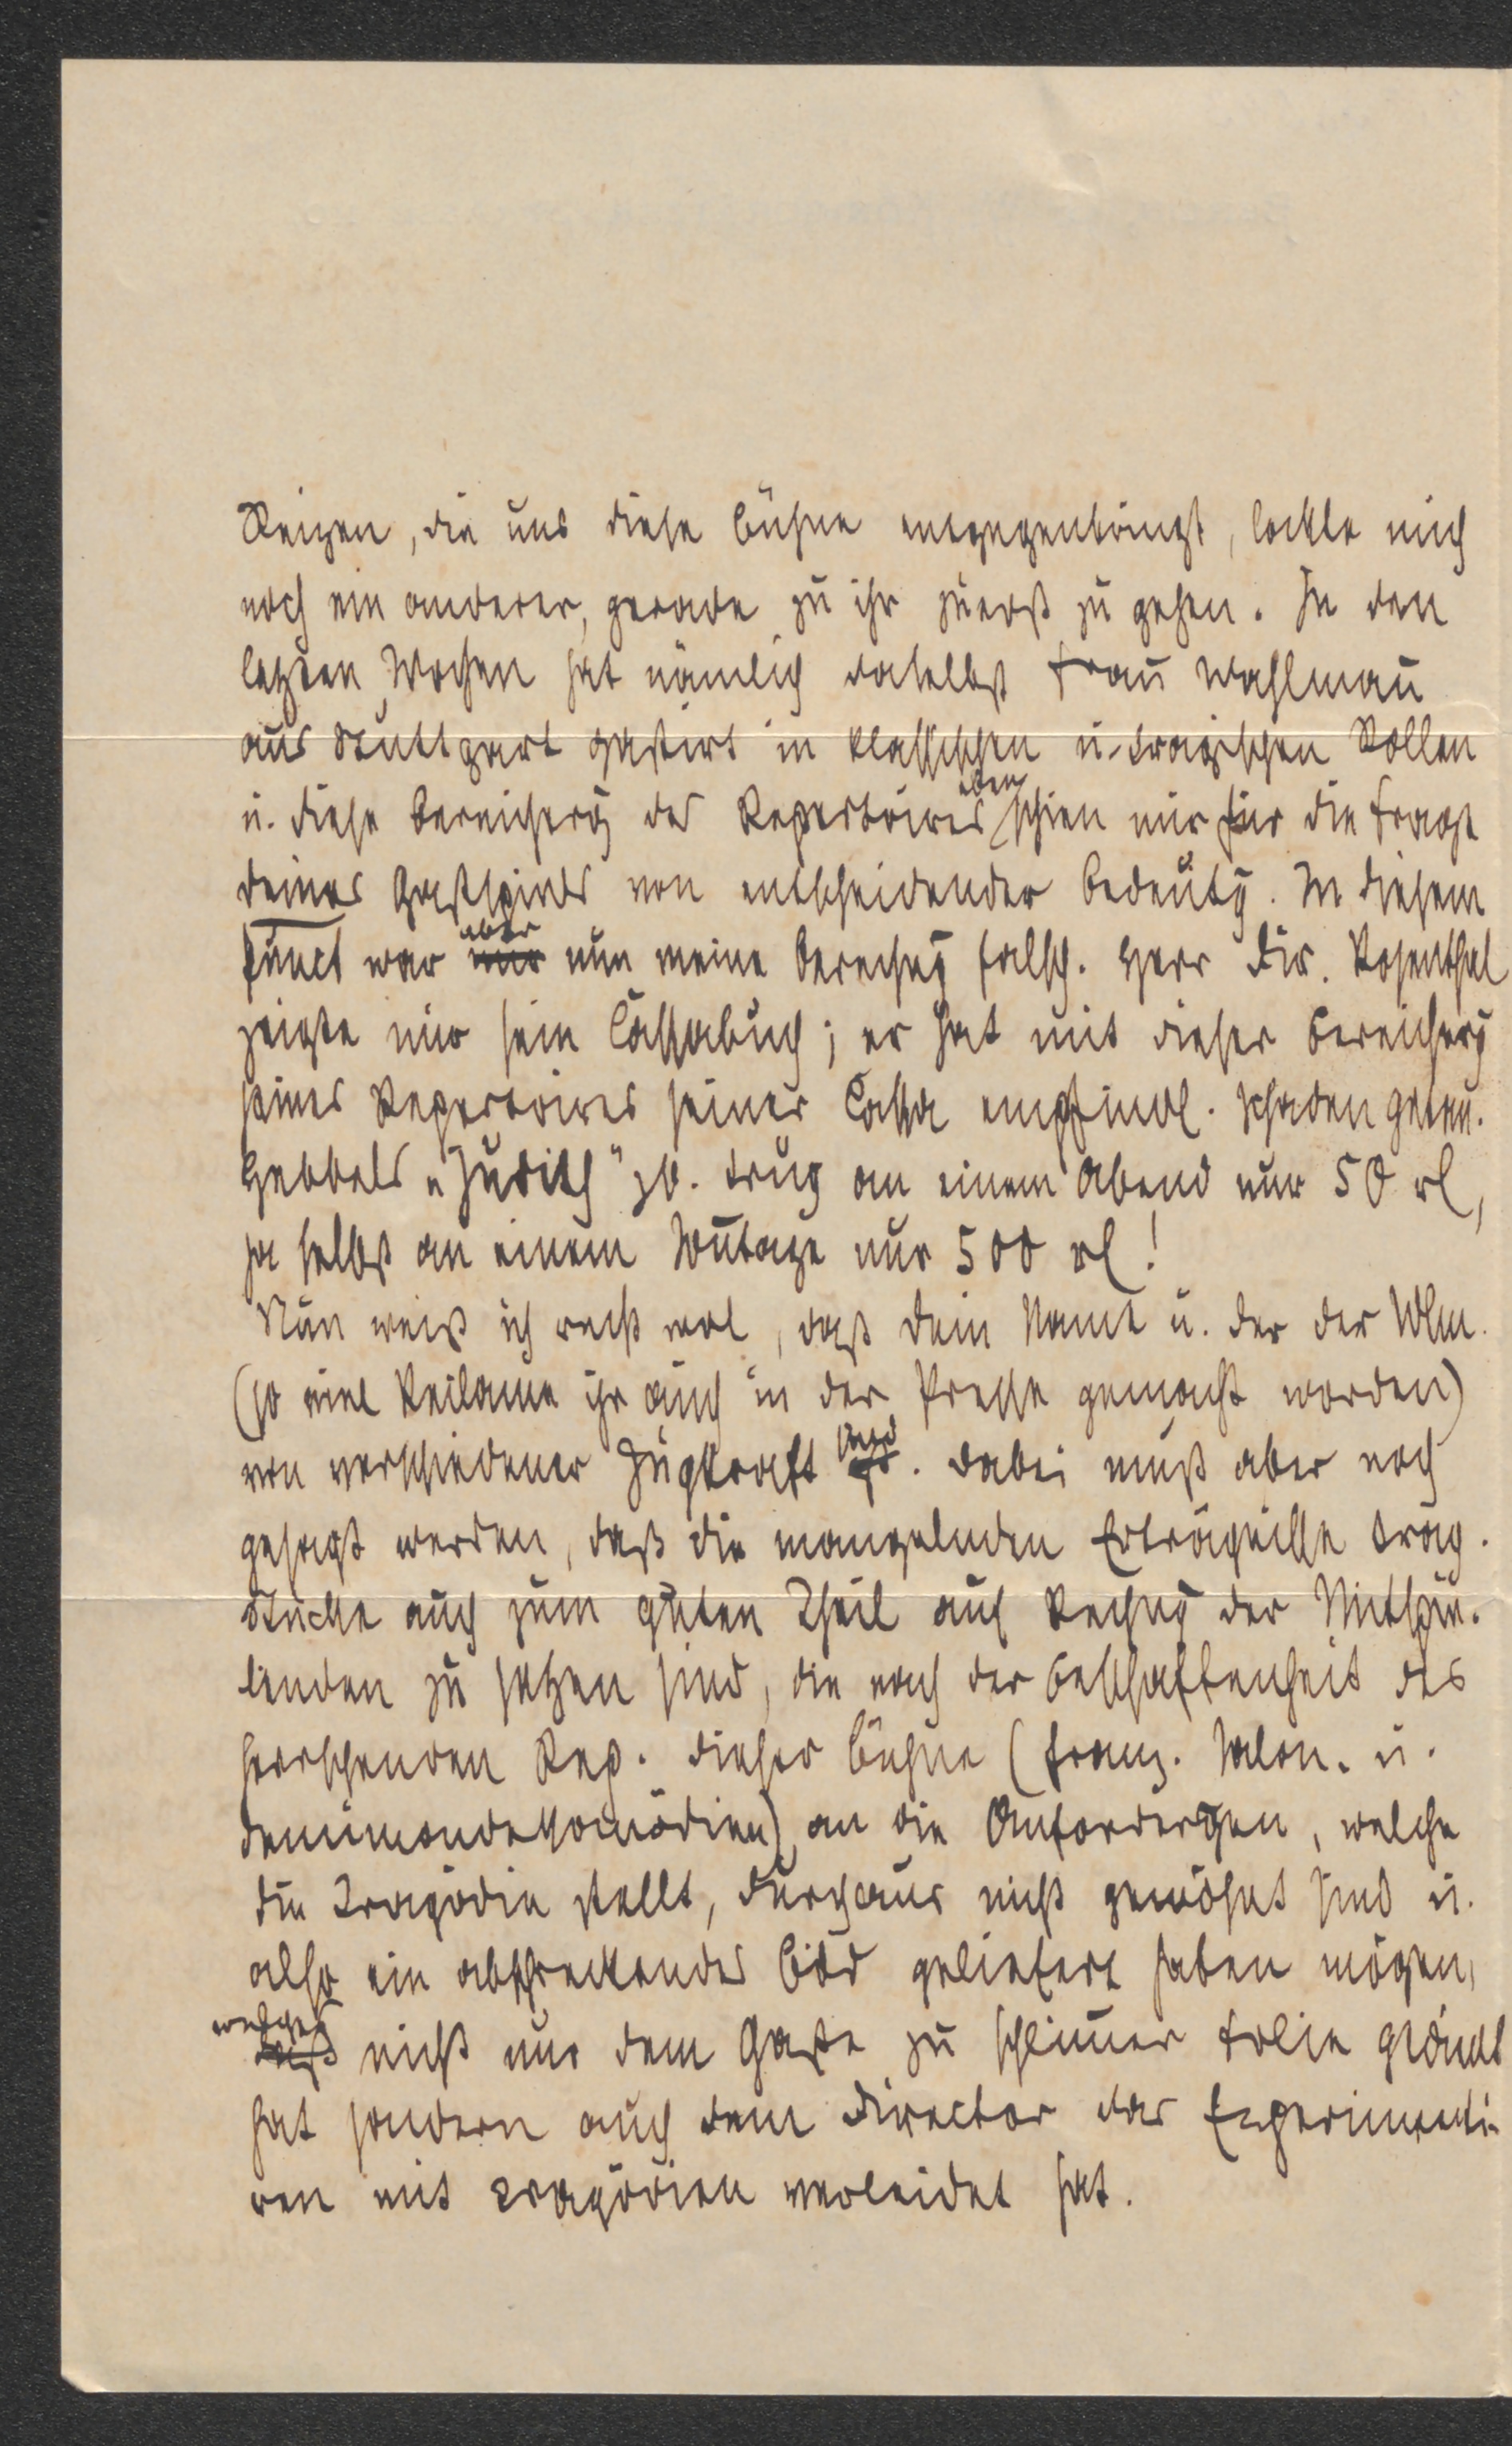 Reizen, die uns diese Bühne entgegenbringt, lockte mich
noch ein anderer, gerade zu ihr zuerst zu gehen. In den
letzten Wochen hat nämlich daselbst Frau Wahlmañ
aus Stuttgart gastirt in klassischen u. tragischen Rollen
u. diese Bereicherg des Repertoires eben schien mir für die Frage
deines Gastspiels von entscheidender Bedeutg. In diesem
Punct war aber nun meine Berechng falsch. Herr Dir. Rosenthal
zeigte mir sein Cassabuch; er hat mit dieser Bereicherg
seines Repertoires seiner Cassa empfindl. Schaden getan.
Hebbels „Judith" zb. trug an einem Abend nur 50 rl,
ja selbst an einem Sõtage nur 500 rl!
Nun weiß ich recht wol, daß dein Name u. der der Wlm.
(so viel Reclame ihr auch in der Presse gemacht worden)
von verschiedener Zugkraft sind. Dabei muß aber noch
gesagt werden, daß die mangelnden Erträgnisse trag.
Stücke auch zum guten Theil auf Rechng der Mitspie-
lenden zu setzen sind, die nach der Beschaffenheit des
herrschenden Rep. dieser Bühne (franz. Salon- u.
Demimondekomödien) an die Anfordergen, welche
die Tragödie stellt, durchaus nicht gewöhnt sind u.
also ein abschreckendes Bild geliefert haben mögen,
welches nicht nur dem Gaste zu schlim̄er Folie gedient
hat sondern auch dem Director das Experimenti-
ren mit Tragödien verleidet hat.